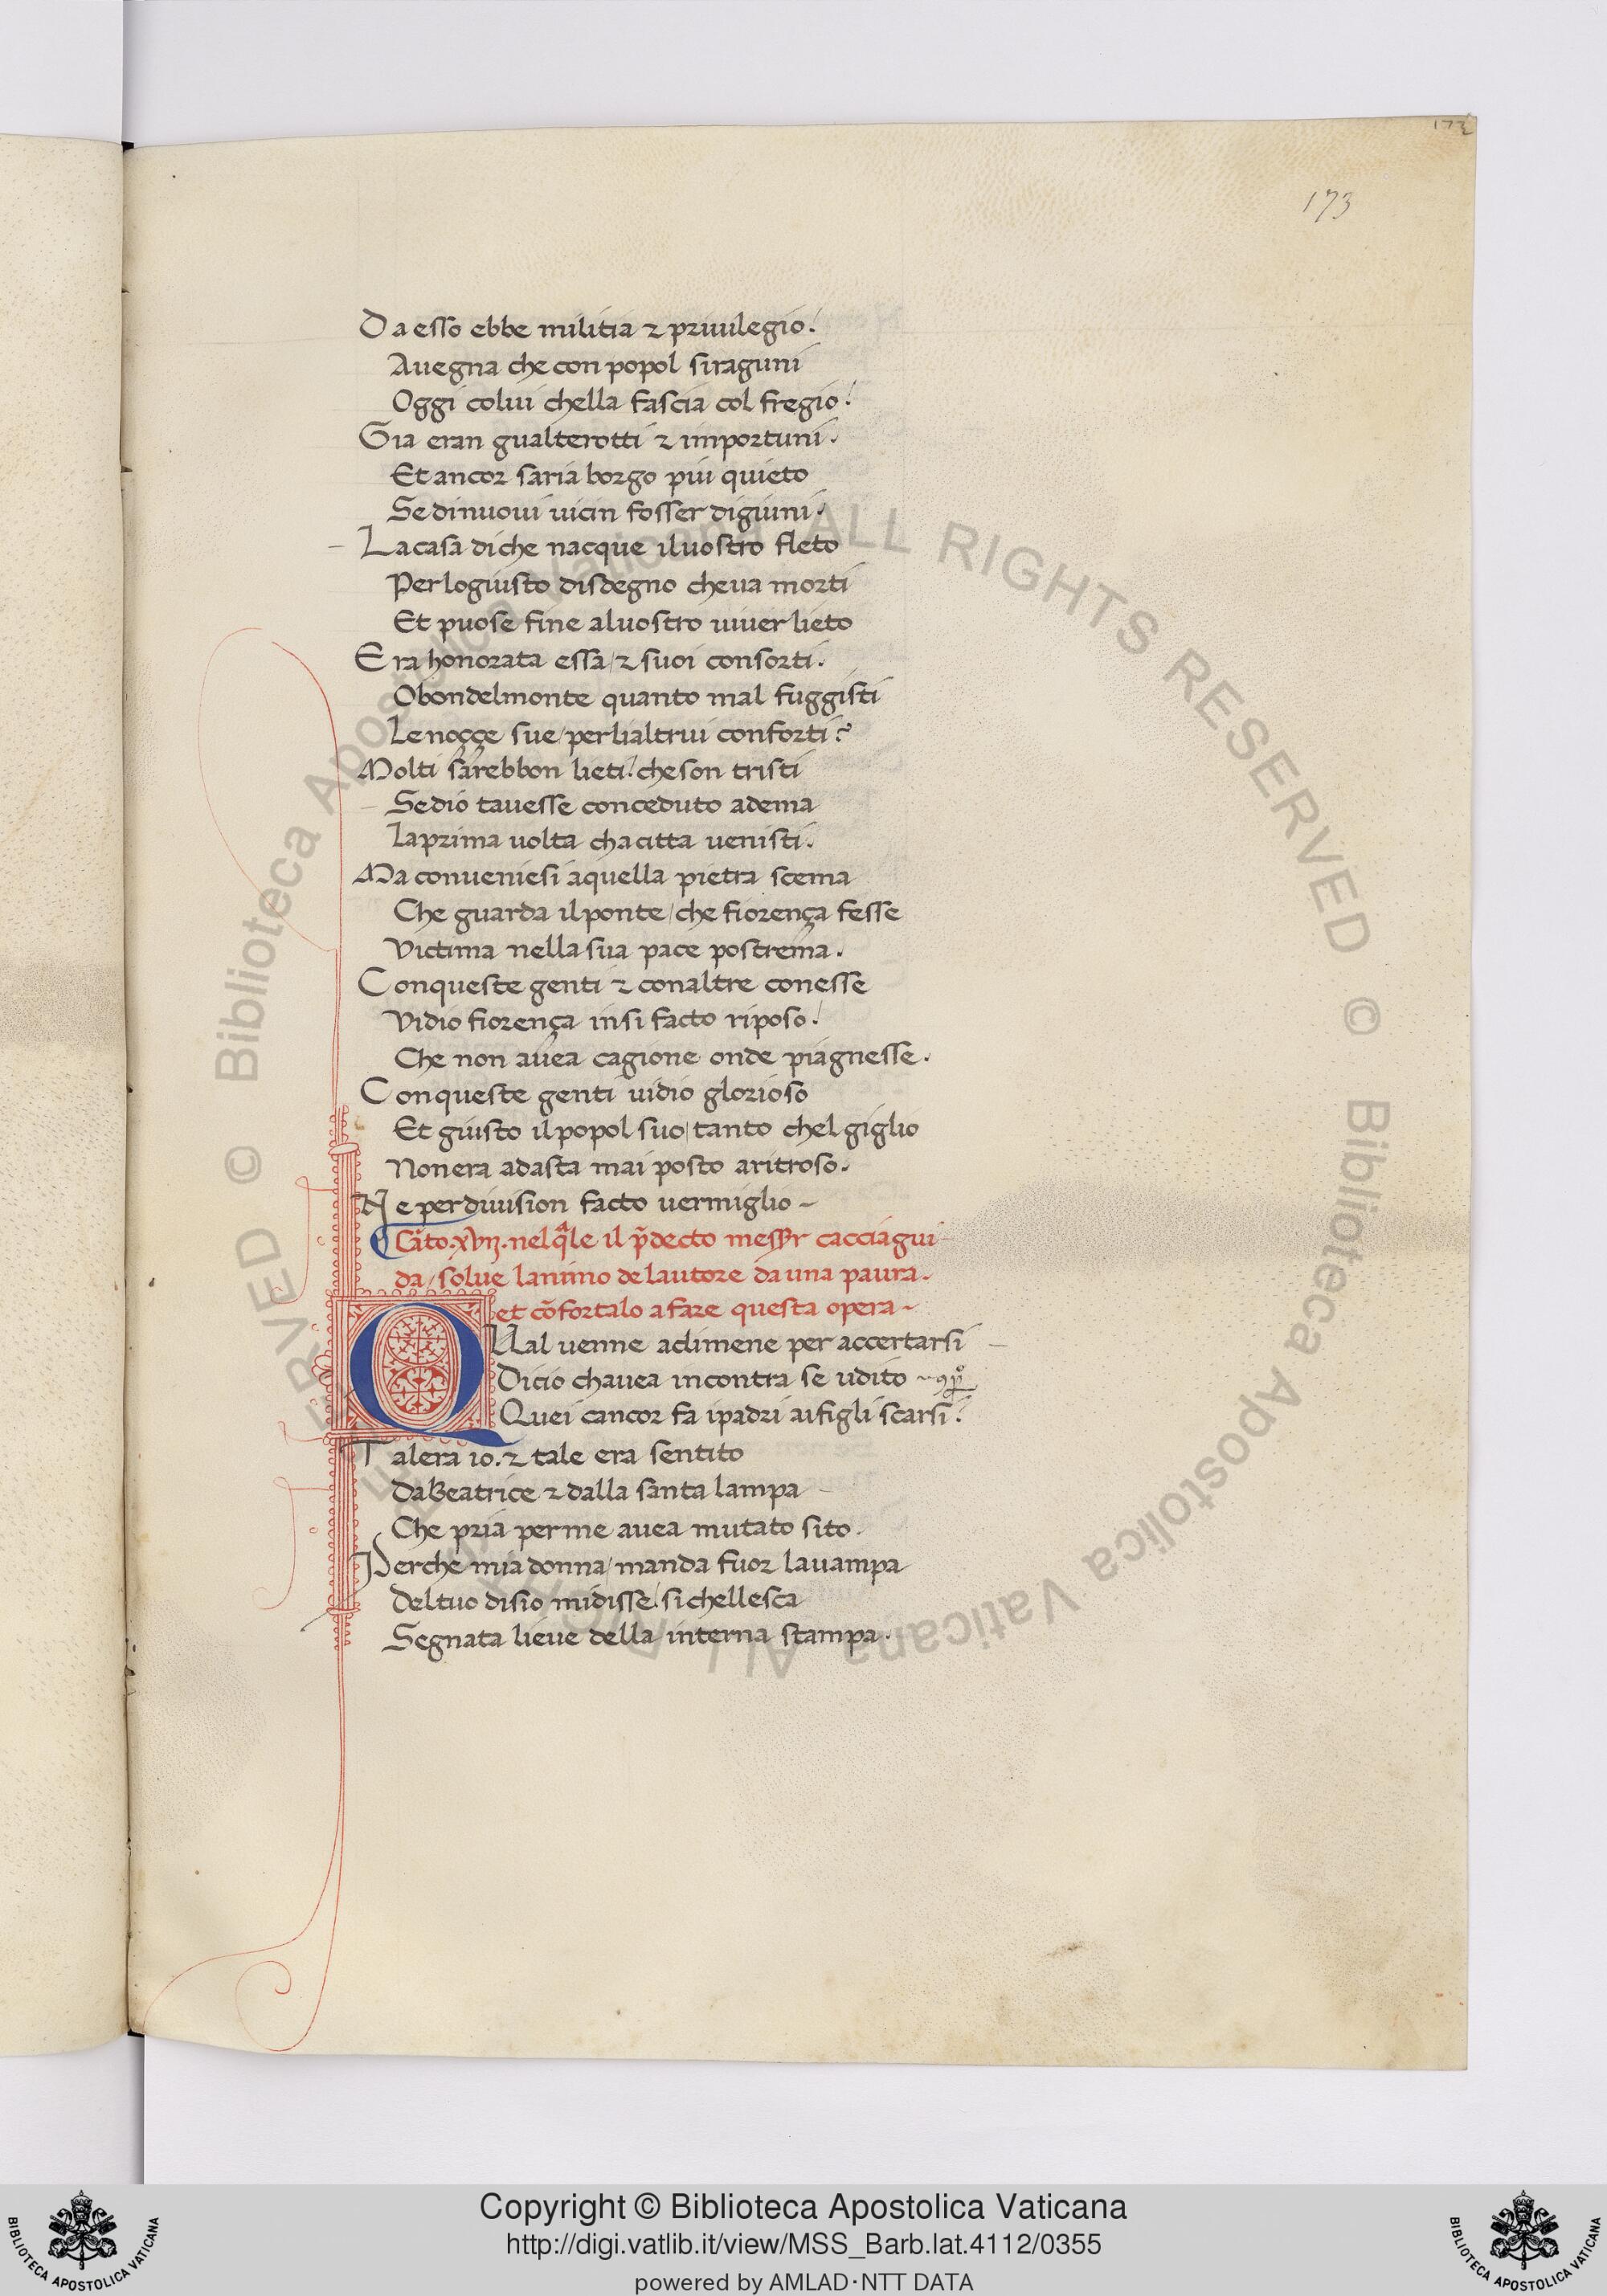 172
173
Da esso ebbe militia ⁊ priuilegio!
Auegna che con popol siraguni
Oggi colui chella fascia col fregio!
Gia eran gualterotti ⁊ importuni.
Et ancor saria borgo piu quieto
Sedinuoui uicin fosser digiuni.
Lacasa diche nacque iluostro fleto
Perlogiusto disdegno cheua morti
Et puose fine aluostro uiuer lieto
Era honorata essa/⁊ suoi consorti.
Obondelmonte quanto mal fuggisti
Lenoççe sue/perlialtrui conforti?
Molti sarebbon lieti! cheson tristi
Sedio tauesse conceduto adema
Laprima uolta chacitta uenisti.
Ma conueniesi aquella pietra scema
Che guarda ilponte/che fiorença fesse
Victima nella sua pace postrema.
Conqueste genti ⁊ conaltre conesse
Vidio fiorença insi facto riposo!
Che non auea cagione onde piagnesse.
Conqueste genti uidio glorioso
Et giusto ilpopol suo/tanto chel giglio
Nonera adasta mai posto aritroso.
Ne per diuision facto uermiglio ~
Cãto.xvij.nelqͣle il p̃decto messer cacciagui
da/solue lanimo de lautore da una paura.
et cõfortalo afare questa opera ~
QVal uenne aclimene per accertarsi
Dicio chauea incontra se udito
Quei cancor fa ipadri aifigli scarsi!
Talera io.⁊ tale era sentito
DaBeatrice ⁊ dalla santa lampa
Che pria perme auea mutato sito.
Perche mia donna/manda fuor lauampa
Deltuo disio midisse! si chellesca
Segnata lieue della interna stampa.
© Biblioteca Apostolica Vaticana ALL RIGHTS RESERVED © Biblioteca Apostolica Vaticana ALL RIGHTS RESERVED
Copyright © Biblioteca Apostolica Vaticana
http://digi.vatlib.it/view/MSS_Barb.lat.4112/0355
powered by AMLAD·NTT DATA
BIBLIOTECA APOSTOLICA VATICANA
BIBLIOTECA APOSTOLICA VATICANA